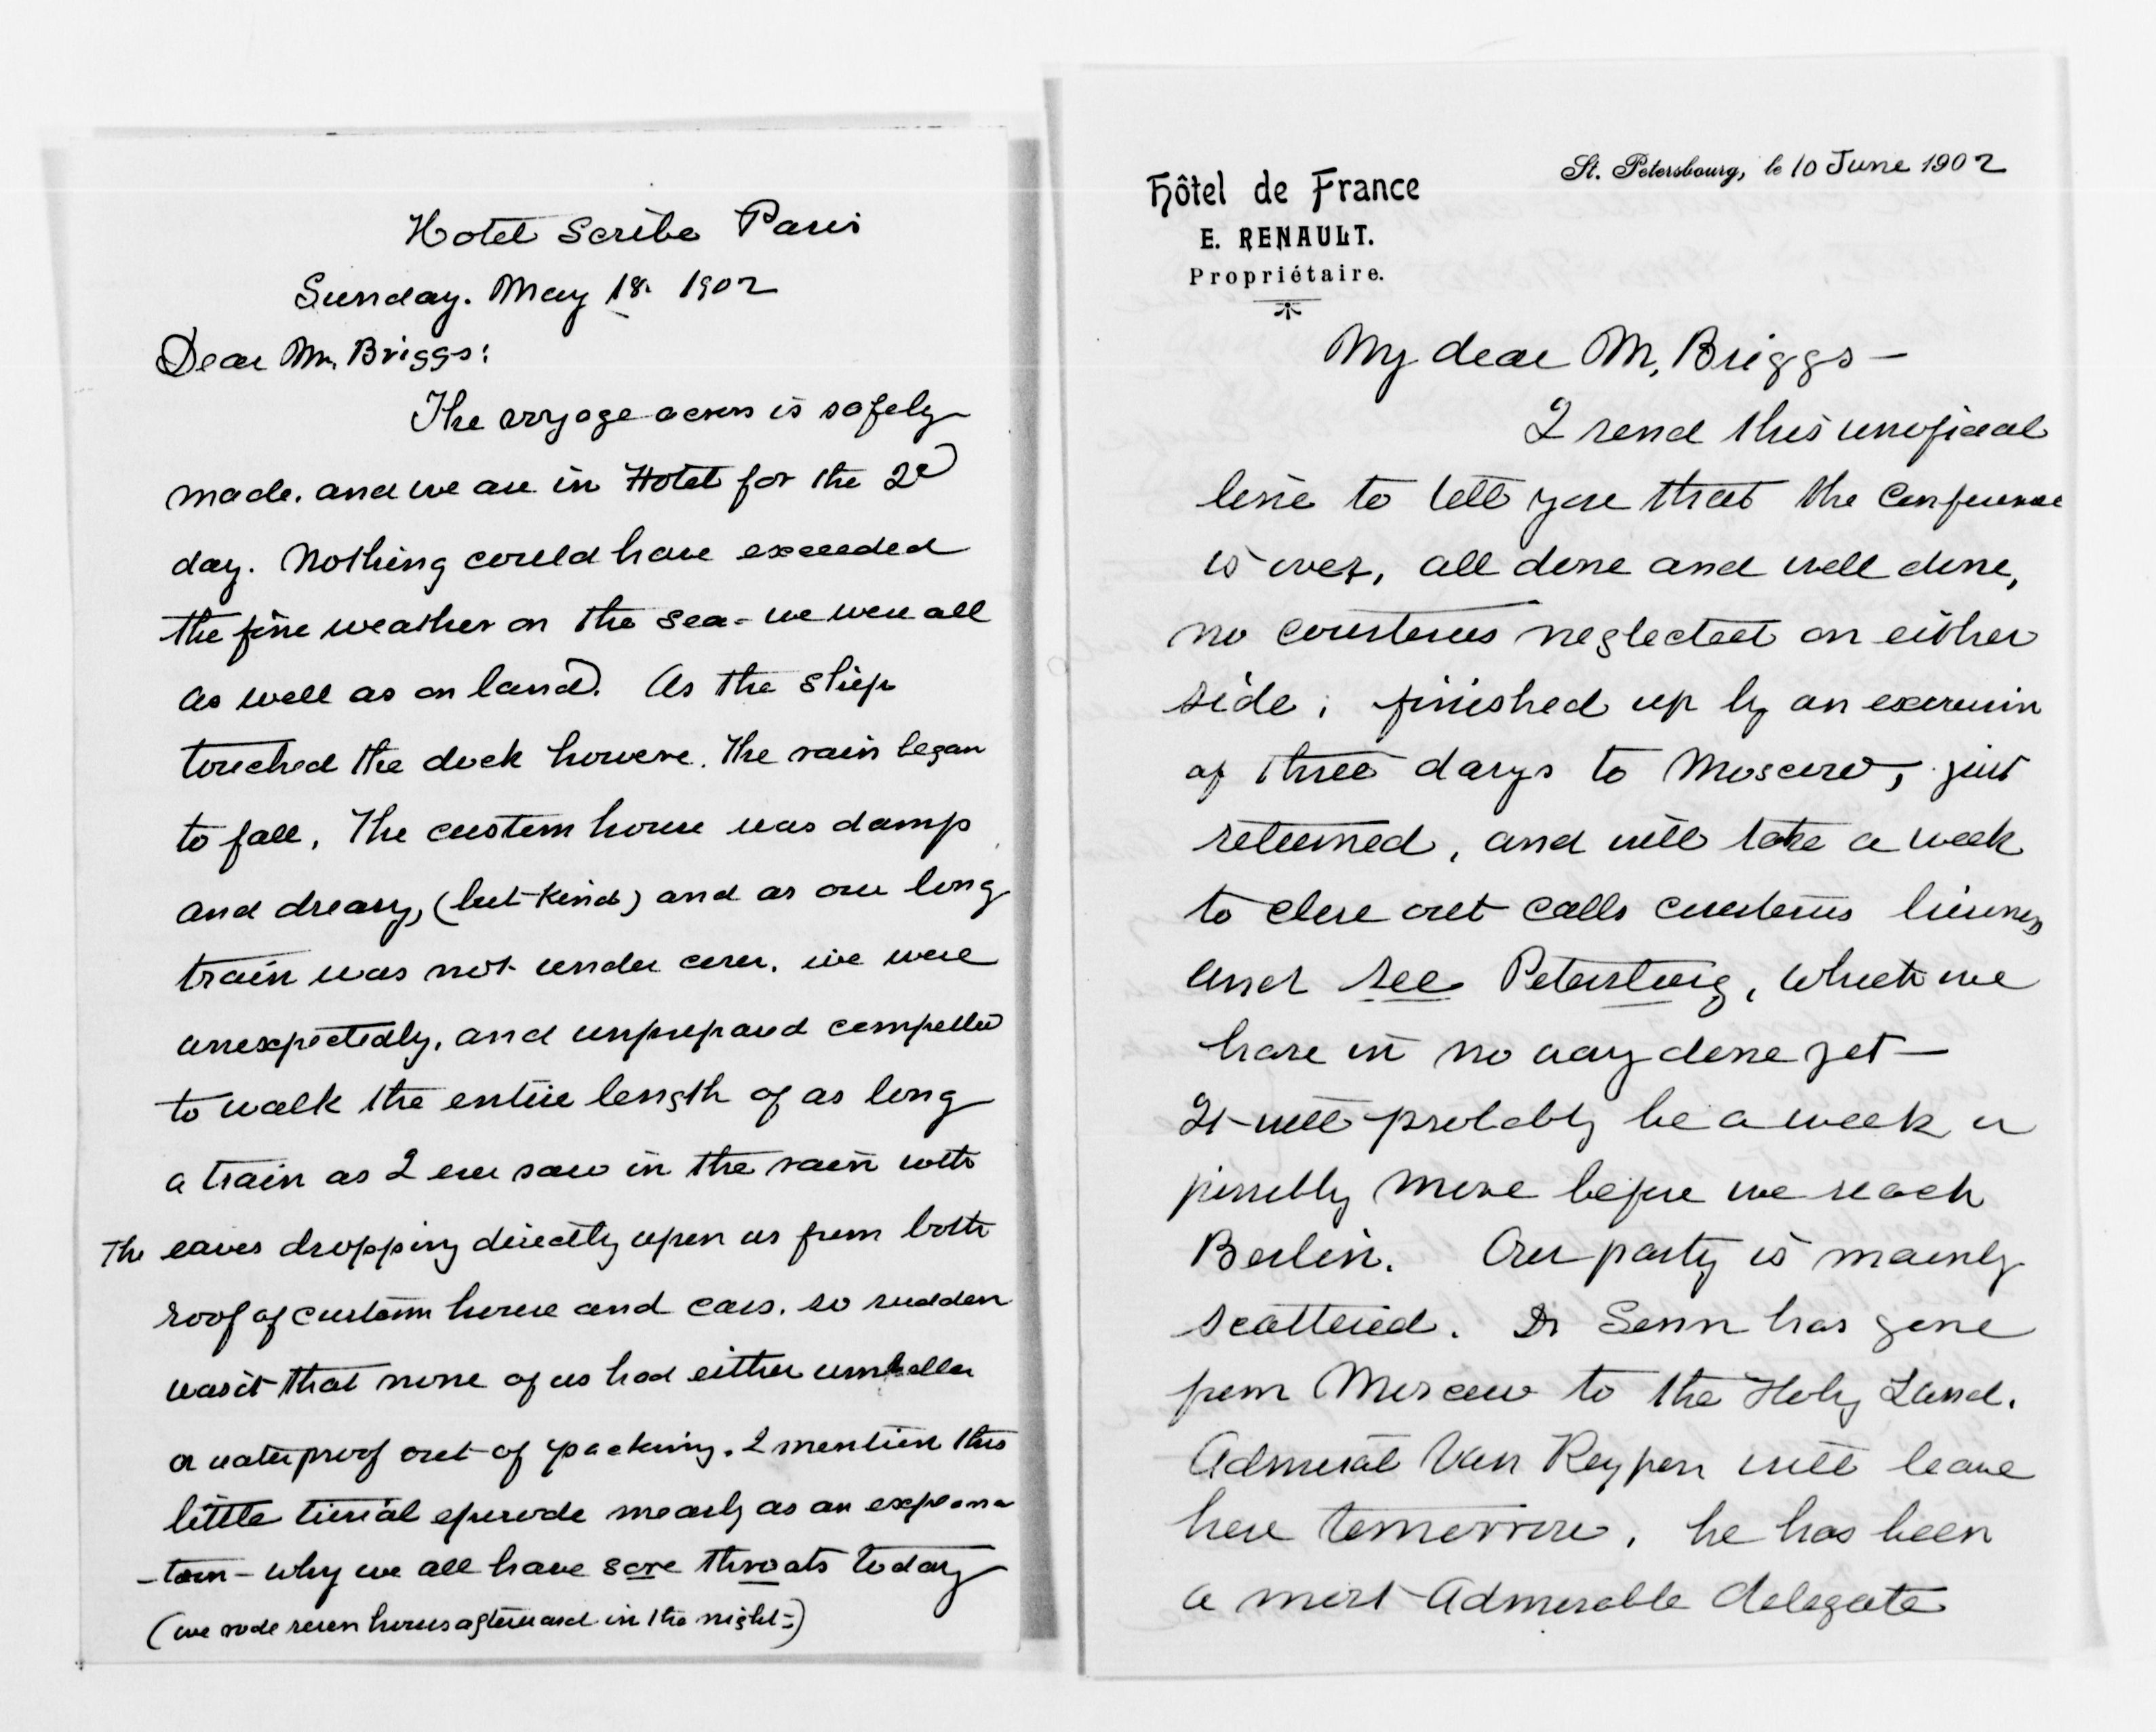 Hotel Scribe Paris
Sunday. May 18. 1902
Dear Mr. Briggs:
The voyage across is safely
made. and we are in Hotel for the 2d
day. Nothing could have exceeded
the fine weather on the sea - we were all
as well as on land. As the ship
touched the dock however. The rain began
to fall, The custom house was damp
and dreary, (but kind) and as our long
train was not under cover. we were
unexpectedly, and unprepared compelled
to walk the entire length of as long
a train as I ever saw in the rain with
The eaves dropping directly upon us from both
roof of custom house and cars. so sudden
was it that none of us had either umbrella
or waterproof out of packing. I mention this
little episode mearly as an explana
-tion - why we all have sore throats today
(we rode seven hours afterward in the night -)
Hôtel de France
E. RENAULT.
Propriétaire.
St. Petersbourg, le 10 June 1902
My dear Mr, Briggs -
I send this unoficial
line to tell you that the Conference
is over, all done and well done,
no courtesies neglected on either
side; finished up by an excursion
of three days to Moscow, just
returned, and will take a week
to close out calls courtesies
and see Petersburg, which we
have in no way done yet -
It will probably be a week or
possibly more before we reach
Berlin. Our party is mainly
scattered. Dr Senn has gone
from Moscow to the Holy Land.
Admiral Van Reypen will leave
here tomorrow, he has been
a most Admirable delegate